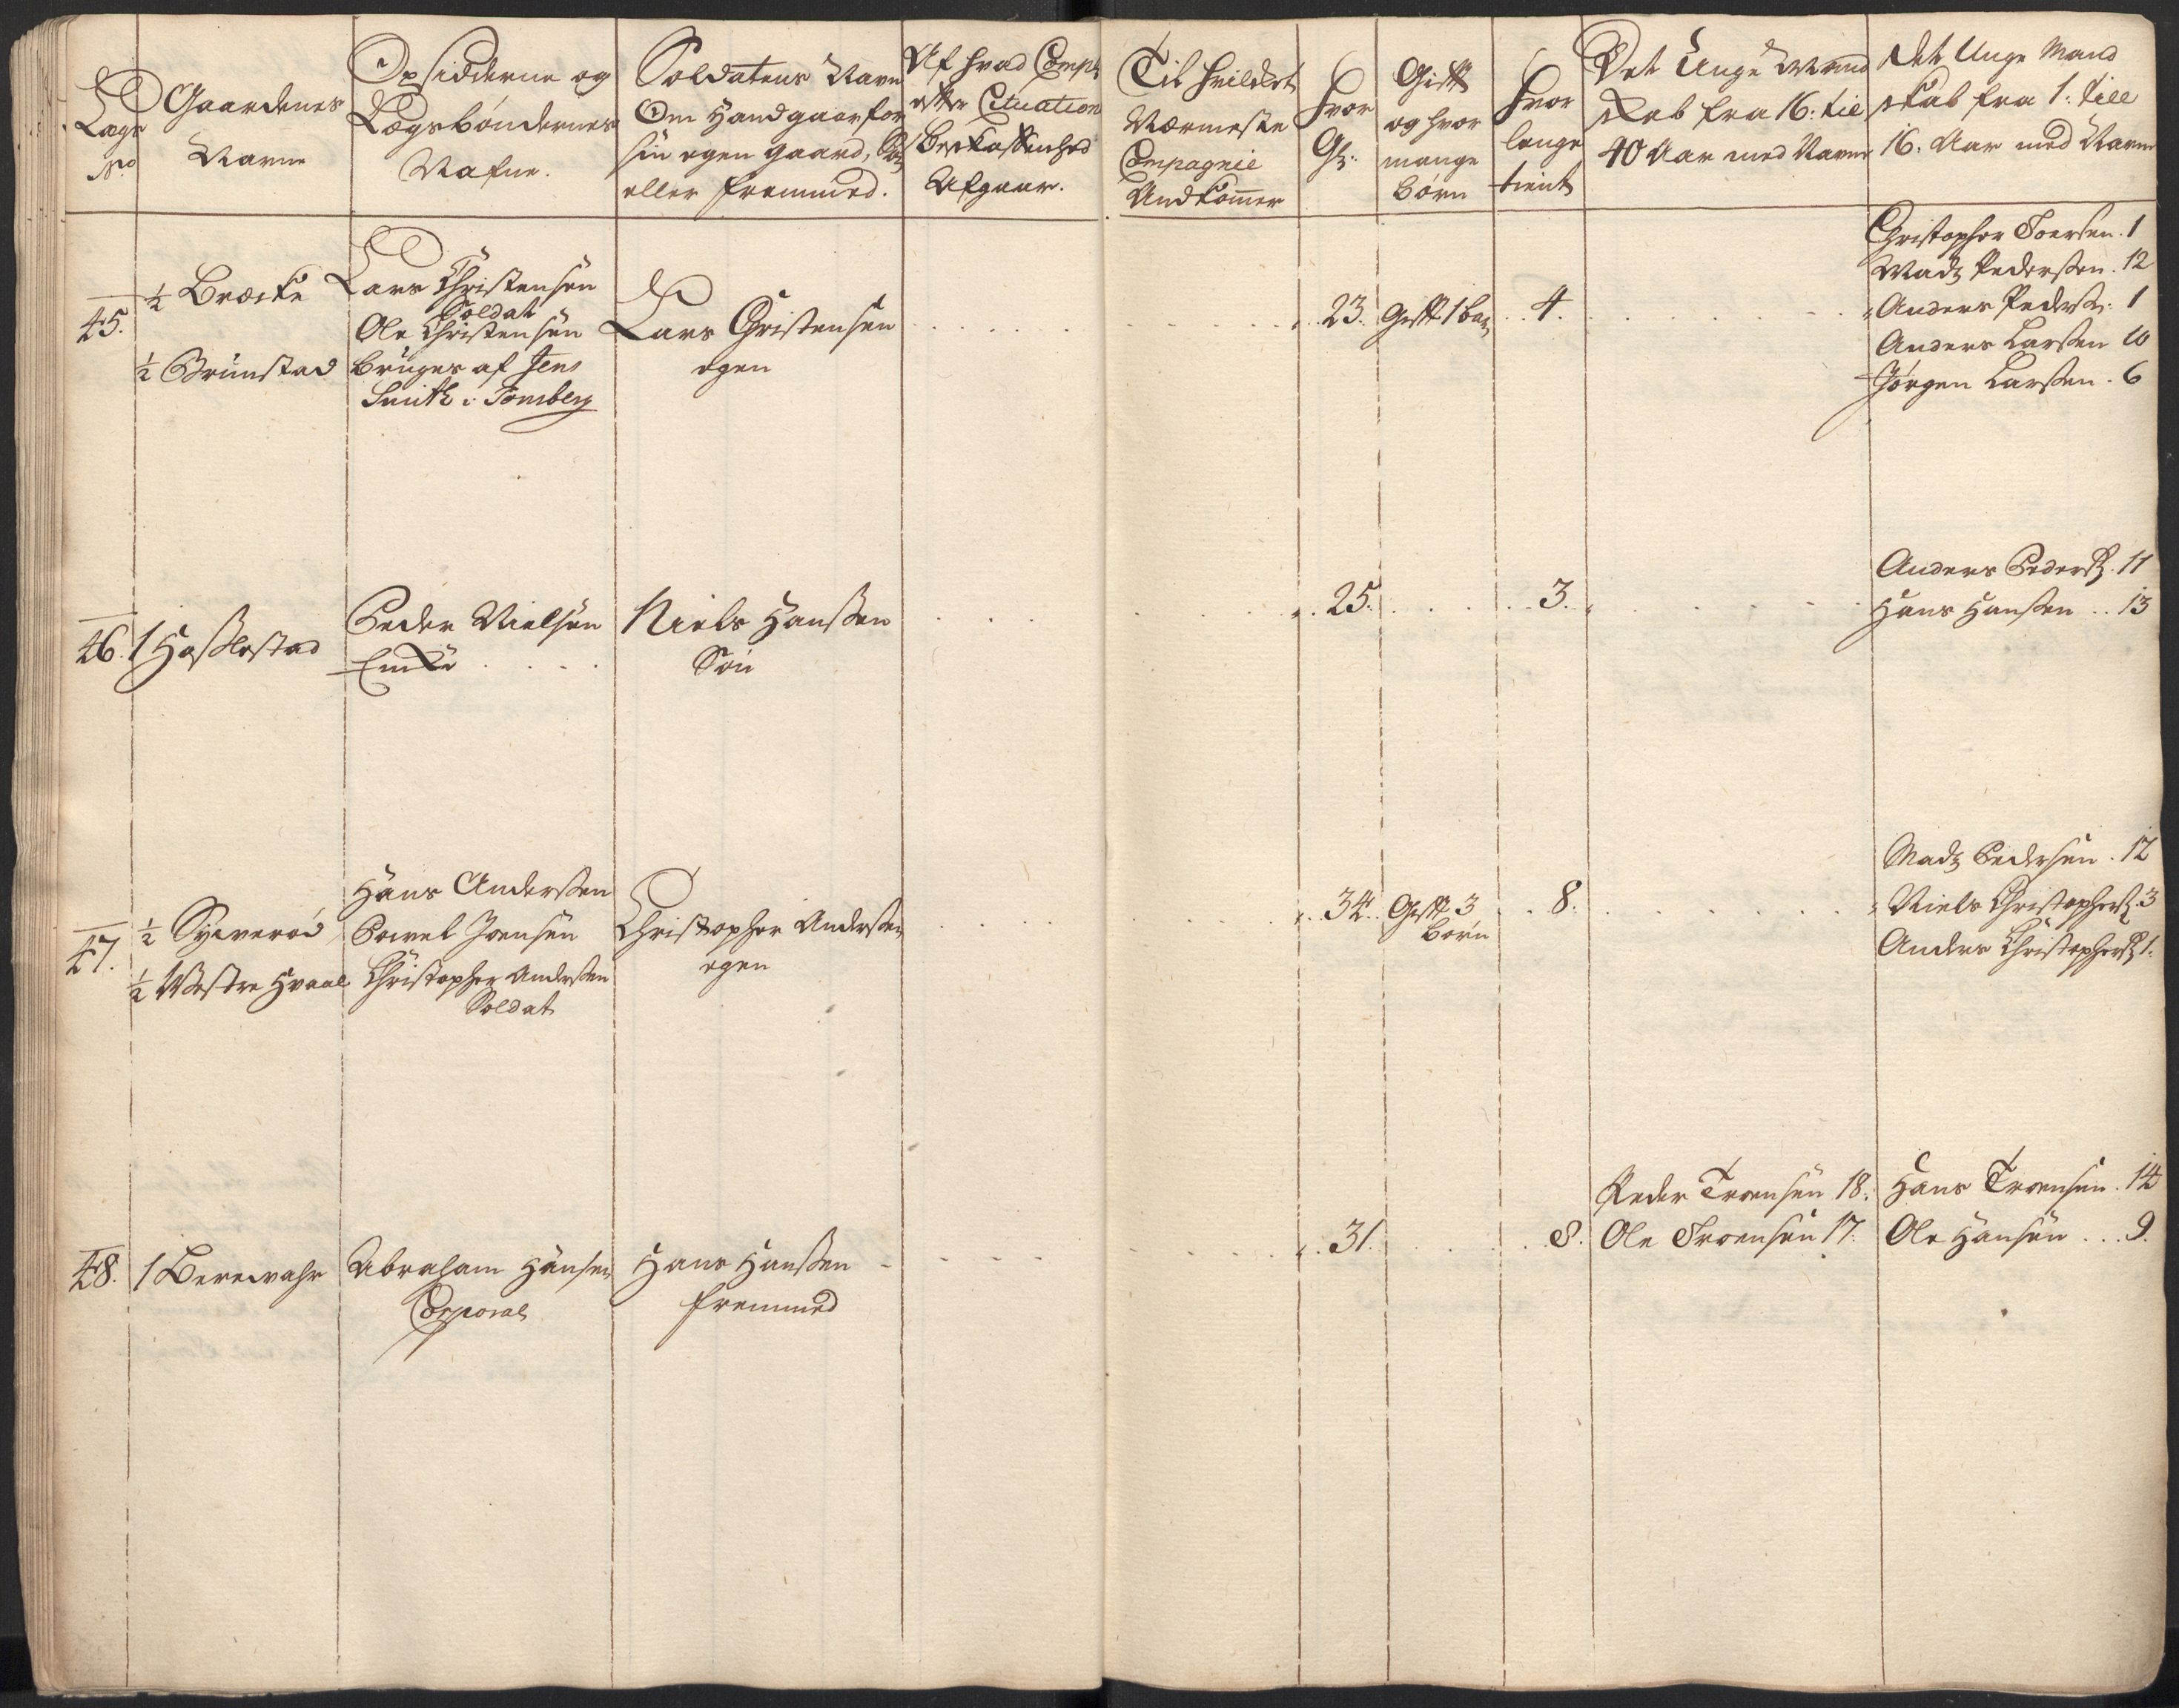 Lægs
No
Gaardenes
Navne
Opsidderne og
Lægsbøndernes
Nafne.
Soldatens Navn
Om Hand gaar for
sin egen gaard, Søn
eller fremmed.
Af hvad Comp:
efter Cituation
Beskaffenhed
Afgaar.
Til hvilcket
Nærmeste
Compagnie
Andkommer
Hvor
Gl:
Gift
og hvor
mange
børn
Hvor
lenge
tient
Det Unge Mand
skab fra 16: til
40 Aar med Navne
Det Unge Mand
skab fra 1: till
16. Aar med Navne
45.
½ Bræcke
½ Grimstad
Lars Christensen
Soldat
Ole Christensen
bruges af Jens
Smith i Tonsberg
Lars Christensen
egen
23.
Gift 1 barn
4.
Christopher Joersen. 1
Madz Pedersen. 12
Anders Peders: 1
Anders Larsen 10
Jørgen Larsen. 6
46.
1 Hasslestad
Peder Nielsen
Encke
Niels Hansen
Søn
25.
3.
Anders Peders. 11
Hans Hansen .. 13
47.
½ Syverød
½ Westre Hvaal
Hans Andersen
Powel Joensen
Christopher Andersen
Soldat
Christopher Andersen
egen
34.
Gift 3
børn
8.
Madz Pedersen. 12
Niels Christophers. 3
Anders Christophers 1.
48.
1 Berrevahr
Abraham Hansen
Corporal
Hans Hansen
fremmed
31.
8.
Peder Troensen 18.
Ole Troensen 17.
Hans Troensen. 14
Ole Hansen ... 9.